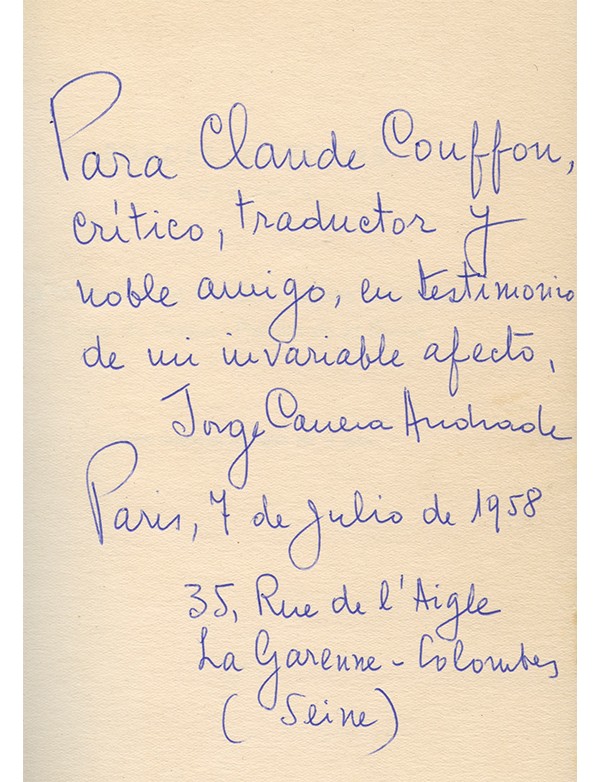 Para Claude Couffon,
crítico, traductor y
noble amigo, en testimonio
de mi invariable afecto,
Jorge Carrera Andrade
Paris, 7 de Julio de 1958
35, Rue de l'Aigle
La Garenne-Colombes
(Seine)